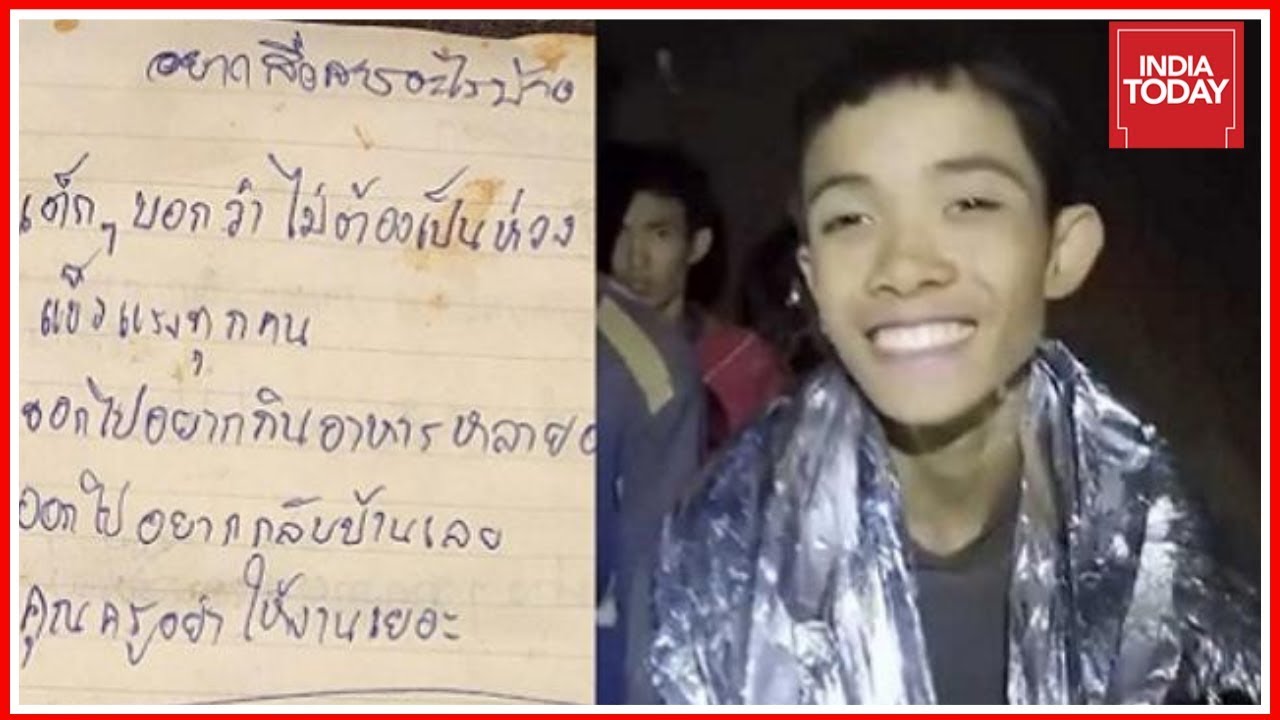 อยากสื่อสารอะไรบ้าง
เด็กๆ บอกว่า ไม่ต้องเป็นห่วง
แข็งแรงทุกคน
ออกไปอยากกินอาหารหลาย
ออกไปอยากกลับบ้านเลย
คุณครูอย่าให้งานเยอะ
INDIA
TODAY